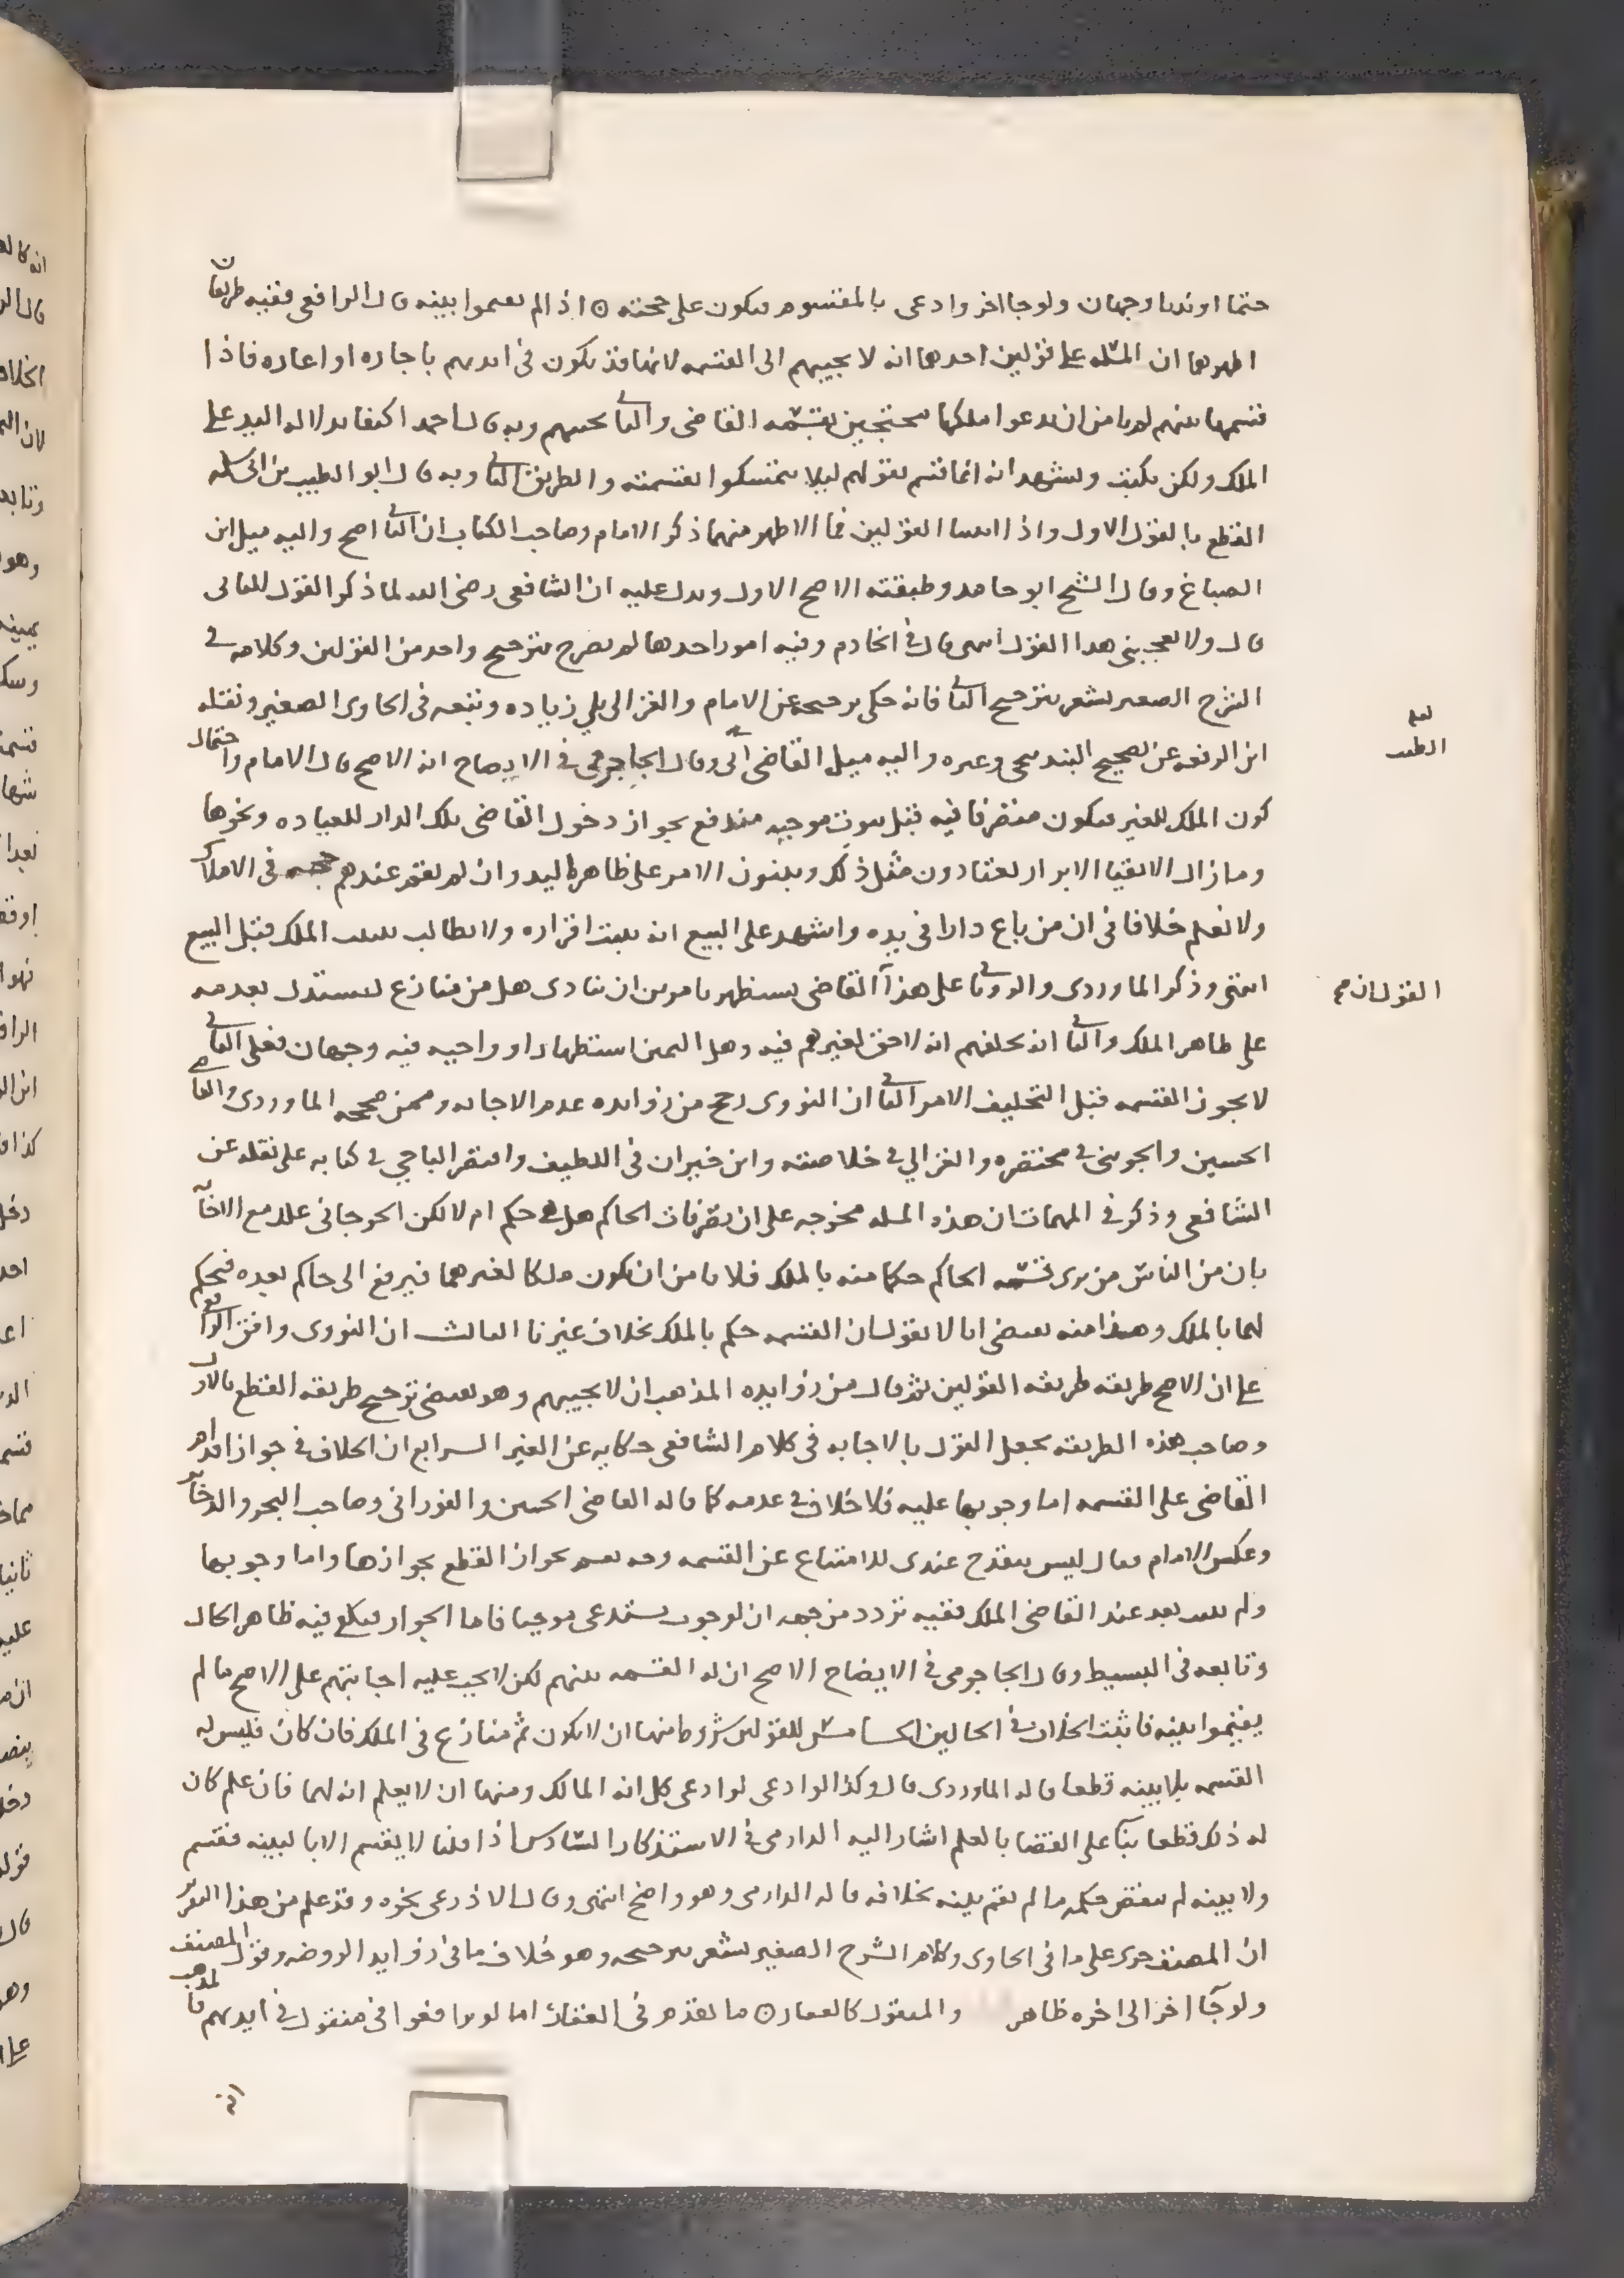 حتما او ندبا وجهان ولو جا اخر وادعى بالمقسوم فيكون على حجته ه اذا لم يقيموا بينه قال الرافعي ففيه طريقان
اظهرهما ان المسله على قولين احدهما انه لا يجيبهم الى القسمه لانها قد تكون في ايديهم باجاره او اعاره فاذا
قسمها بينهم لم يامن ان يدعوا ملكها محتجين بقسمه القاضي والثاني يجيبهم وبه قال احمد اكتفا بدلاله اليد على
الملك ولكن يكتب ويشهد انه انما قسم بقولهم ليلا يتمسكوا بقسمته والطريق الثاني وبه قال ابو الطيب بن سلمه
القطع بالقول الاول واذا اثبتنا القولين فما الاظهر منهما ذكر الامام وصاحب الكتاب ان الثاني اصح واليه ميل ابن
الصباغ وقال الشيخ ابو حامد وطبقته الاصح الاول ويدل عليه ان الشافعي رضي الله لما ذكر القول الثاني
قال ولا يعجبني هذا القول انتهى قال في الخادم وفيه امور احدها لم يصرح بترجيح واحد من القولين وكلامه في
الشرح الصغير يشعر بترجيح الثاني فانه حكى ترجيحه عن الامام والغزالي بلي زياده وتبعه في الحاوي الصغير ونقله
ابن الرفعه عن تصحيح البندنيجي وغيره واليه ميل القاضي وقال الجاجرمي في الايضاح انه الاصح قال الامام واحتمال
كون الملك للغير فيكون متصرفا فيه قبل ثبوت موجبه مندفع بجواز دخول القاضي تلك الدار للعياده ونحوها
وما زال الاتقيا الابرار يعتادون مثل ذلك ويبنون الامر على ظاهر اليد وان لم تقم عندهم حجه في الاملاك
ولا نعلم خلافا في ان من باع دارا في يده واشهد على البيع انه يثبت اقراره ولا يطالب بثبت الملك قبل البيع
انتهى وذكر الماوردي والروياني على هذا القاضي يستظهر بامرين ان ينادي هل من منازع ليستدل بعدمه
على ظاهر الملك والثاني انه يحلفهم انه لا حق لغيرهم فيه وهل اليمين استظهارا او واجبه فيه وجهان فعلى الثاني
لا يجوز القسمه قبل التحليف الامر الثاني ان النووي رجح من زوايده عدم الاجابه وممن صححه الماوردي والقاضي
الحسين والجويني في مختصره والغزالي في خلاصته وابن خيران في اللطيف واقتصر الباجي في كتابه على نقله عن
الشافعي وذكر في المهمات ان هذه المسله مخرجه على ان تصرفات الحاكم هل هي حكم ام لا لكن الجرجاني علله مع الاتفاق
بان من الناس من يرى قسمه الحاكم حكما منه بالملك فلا يامن ان يكون ملكا لغيرهما فيرفع الى حاكم بعده فيحكم
لهما بالملك وهذا منه يقتضي انا لا نقول ان القسمه حكم بالملك بخلاف غيرنا الثالث ان النووي وافق الرافعي
على ان الاصح طريقه طريقه القولين ثم قال من زوايده المذهب ان لا يجيبهم وهو يقتضي ترجيح طريقه القطع بالاول
وصاحب هذه الطريقه يجعل القول بالاجابه في كلام الشافعي حكايه عن الغير الرابع ان الخلاف في جواز اقدام
القاضي على القسمه اما وجوبها عليه فلا خلاف في عدمه كما قاله القاضي الحسين والفوراني وصاحب البحر والذخائر
وعكس الامام فقال ليس ينقدح عندي للامتناع عن القسمه وجه نعم يجوز القطع بجوازها واما وجوبها
ولم يثبت بعد عند القاضي الملك ففيه تردد من جهه ان الوجوب يستدعي موجبا فاما الجواز فيكفي فيه ظاهر الحال
وتابعه في البسيط وقال الجاجرمي في الايضاح الاصح ان له القسمه بينهم لكن لا يجب عليه اجابتهم على الاصح ما لم
يقيموا بينه فاثبت الخلاف في الحالين الخامس للقولين شروط منها ان لا يكون ثم منازع في الملك فان كان فليس له
القسمه بلا بينه قطعا قاله الماوردي قال وكذا لو ادعى لو ادعى كل انه المالك ومنها ان لا يعلم انه لهما فان علم كان
له ذلك قطعا بنآ على القضا بالعلم اشار اليه الدارمي في الاستذكار السادس اذا قلنا لا يقسم الا بالبينه فقسم
ولا بينه لم ينقض حكمه ما لم تقم بينه بخلافه قاله الدارمي وهو واضح انتهى وقال الاذرعي نحوه وقد علم من هذا التقرير
ان المصنف جرى على ما في الحاوي وكلام الشرح الصغير يشعر بترجيحه وهو خلاف ما في زوايد الروضه وقول المصنف
ولو جآ اخر الى اخره ظاهر والمنقول كالعقار ه ما تقدم في العقار اما لو ترافعوا في منقول في ايديهم فالمذهب
لعله
الطيب
القولان